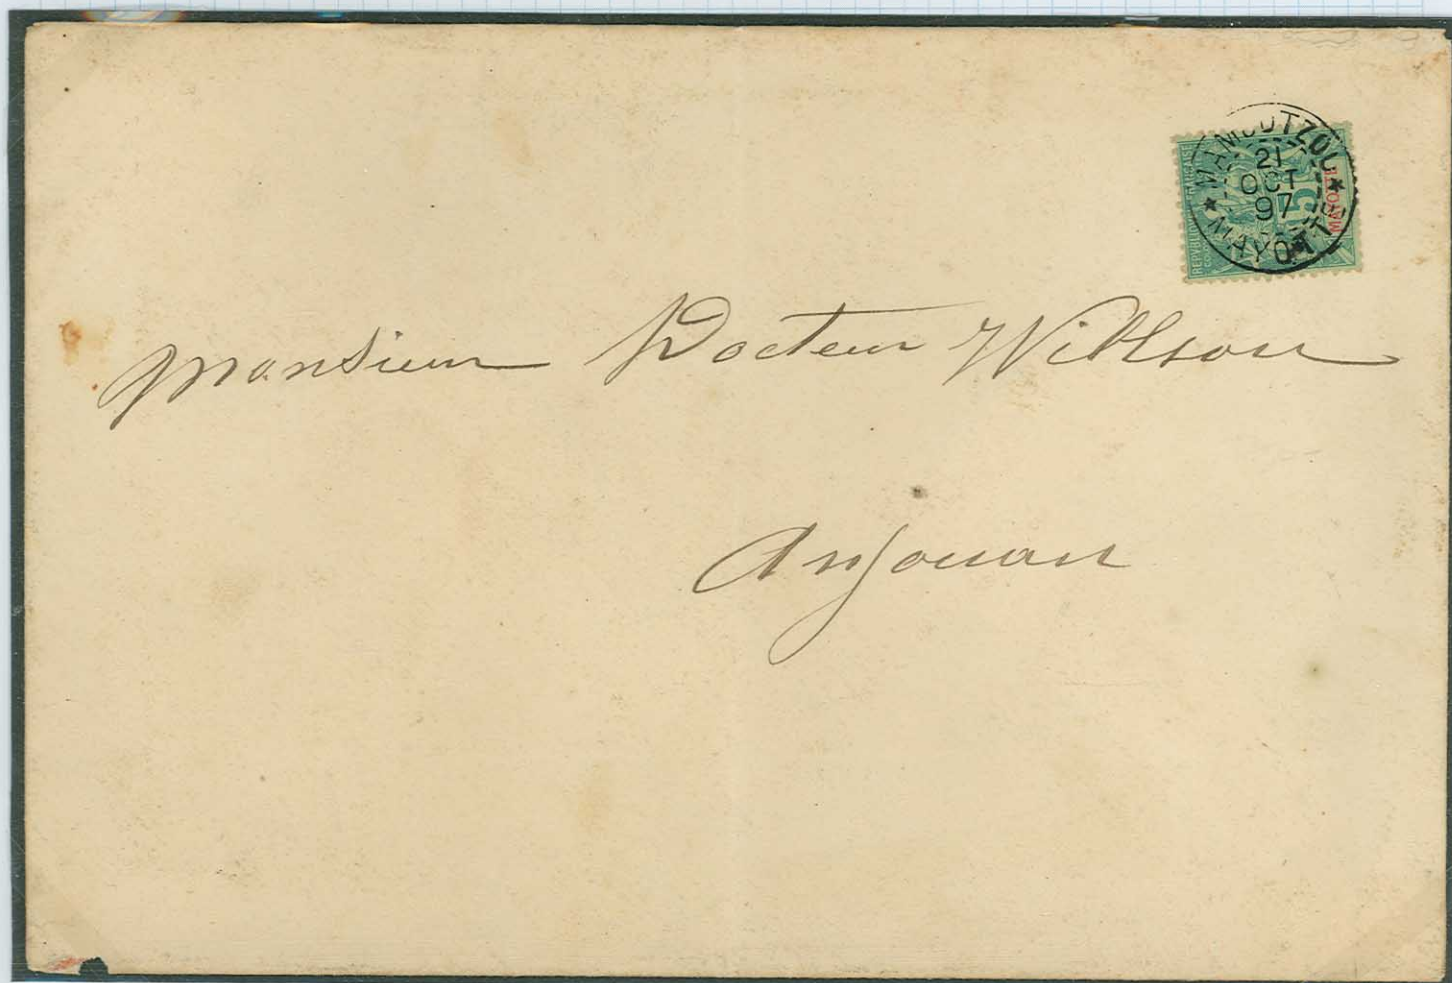 MAMOUTZOU
21
OCT
97
MAYOTTE
REPUBLIQUE FRANCAISE
5
MAYOTTE
Monsieur Docteur Wilson
Anjouan